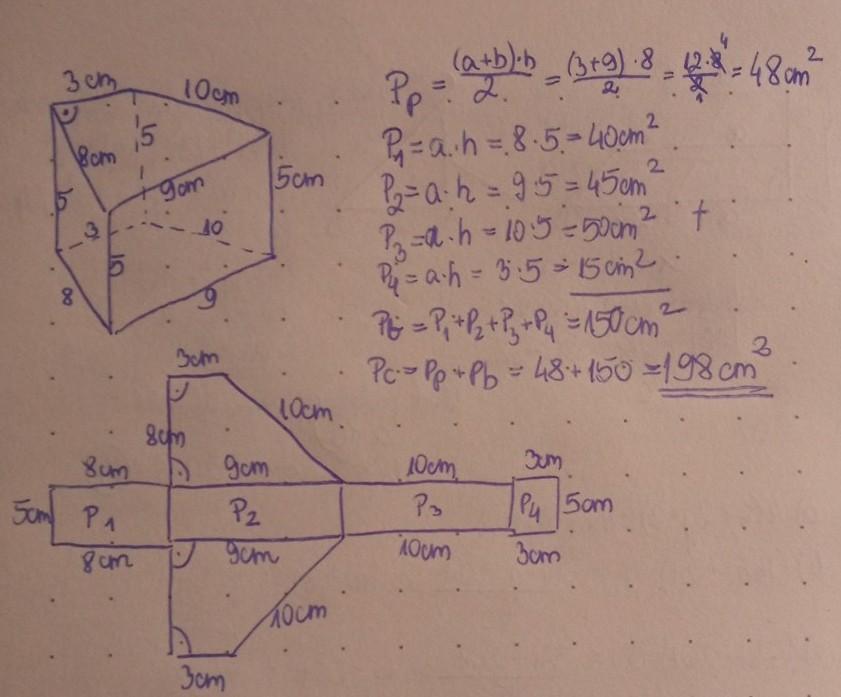 3cm 10cm
8cm 5 9cm 5cm
5 3 10 5
8 9
Pp = (a+b)·h/2 = (3+9)·8/2 = 12·8/2 = 48cm²
4
1
P1 = a·h = 8·5 = 40cm²
P2 = a·h = 9·5 = 45cm²
P3 = a·h = 10·5 = 50cm² +
P4 = a·h = 3·5 = 15cm²
Pb = P1+P2+P3+P4 = 150cm²
Pc = Pp + Pb = 48+150 = 198cm³
3cm
10cm
8cm
8cm 9cm 10cm 3cm
5cm P1 P2 P3 P4 5cm
8cm 9cm 10cm 3cm
10cm
3cm